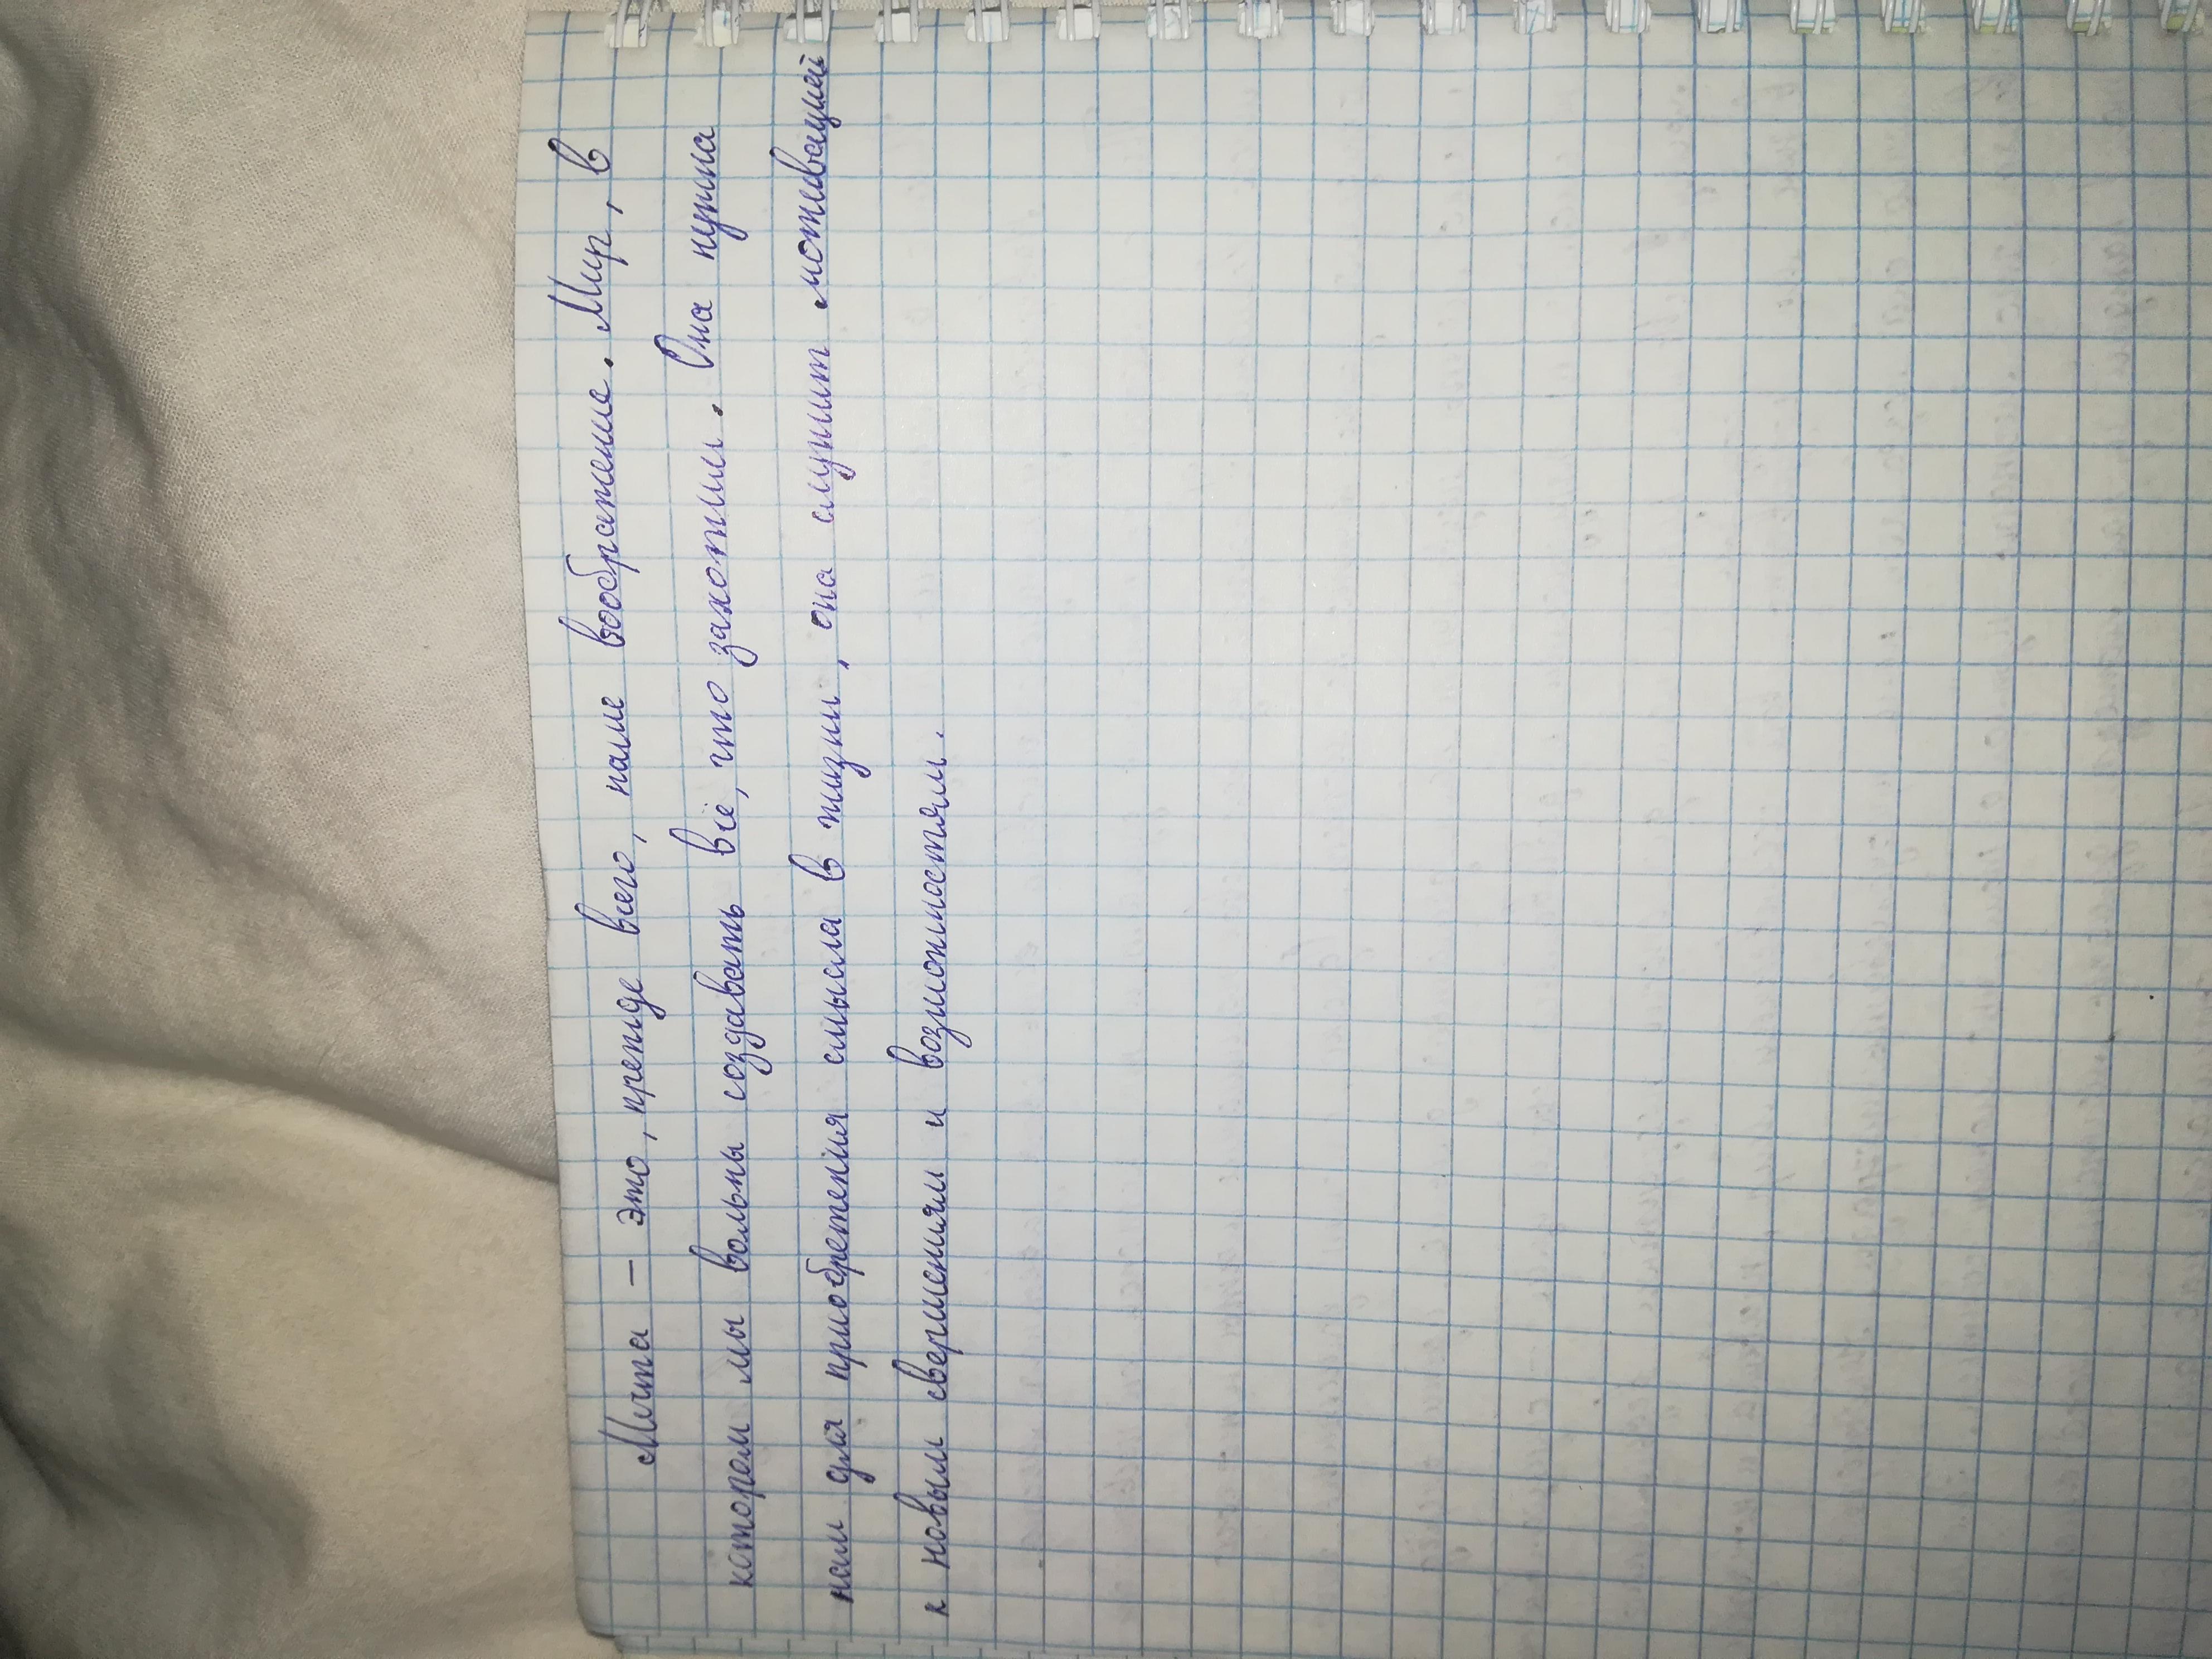 Мечта – это, прежде всего, наше воображение. Мир, в
котором мы вольны создавать всё, что захотим. Она нужна
нам для приобретения смысла в жизни, она служит мотевацией
к новым свершениям и возможностям.